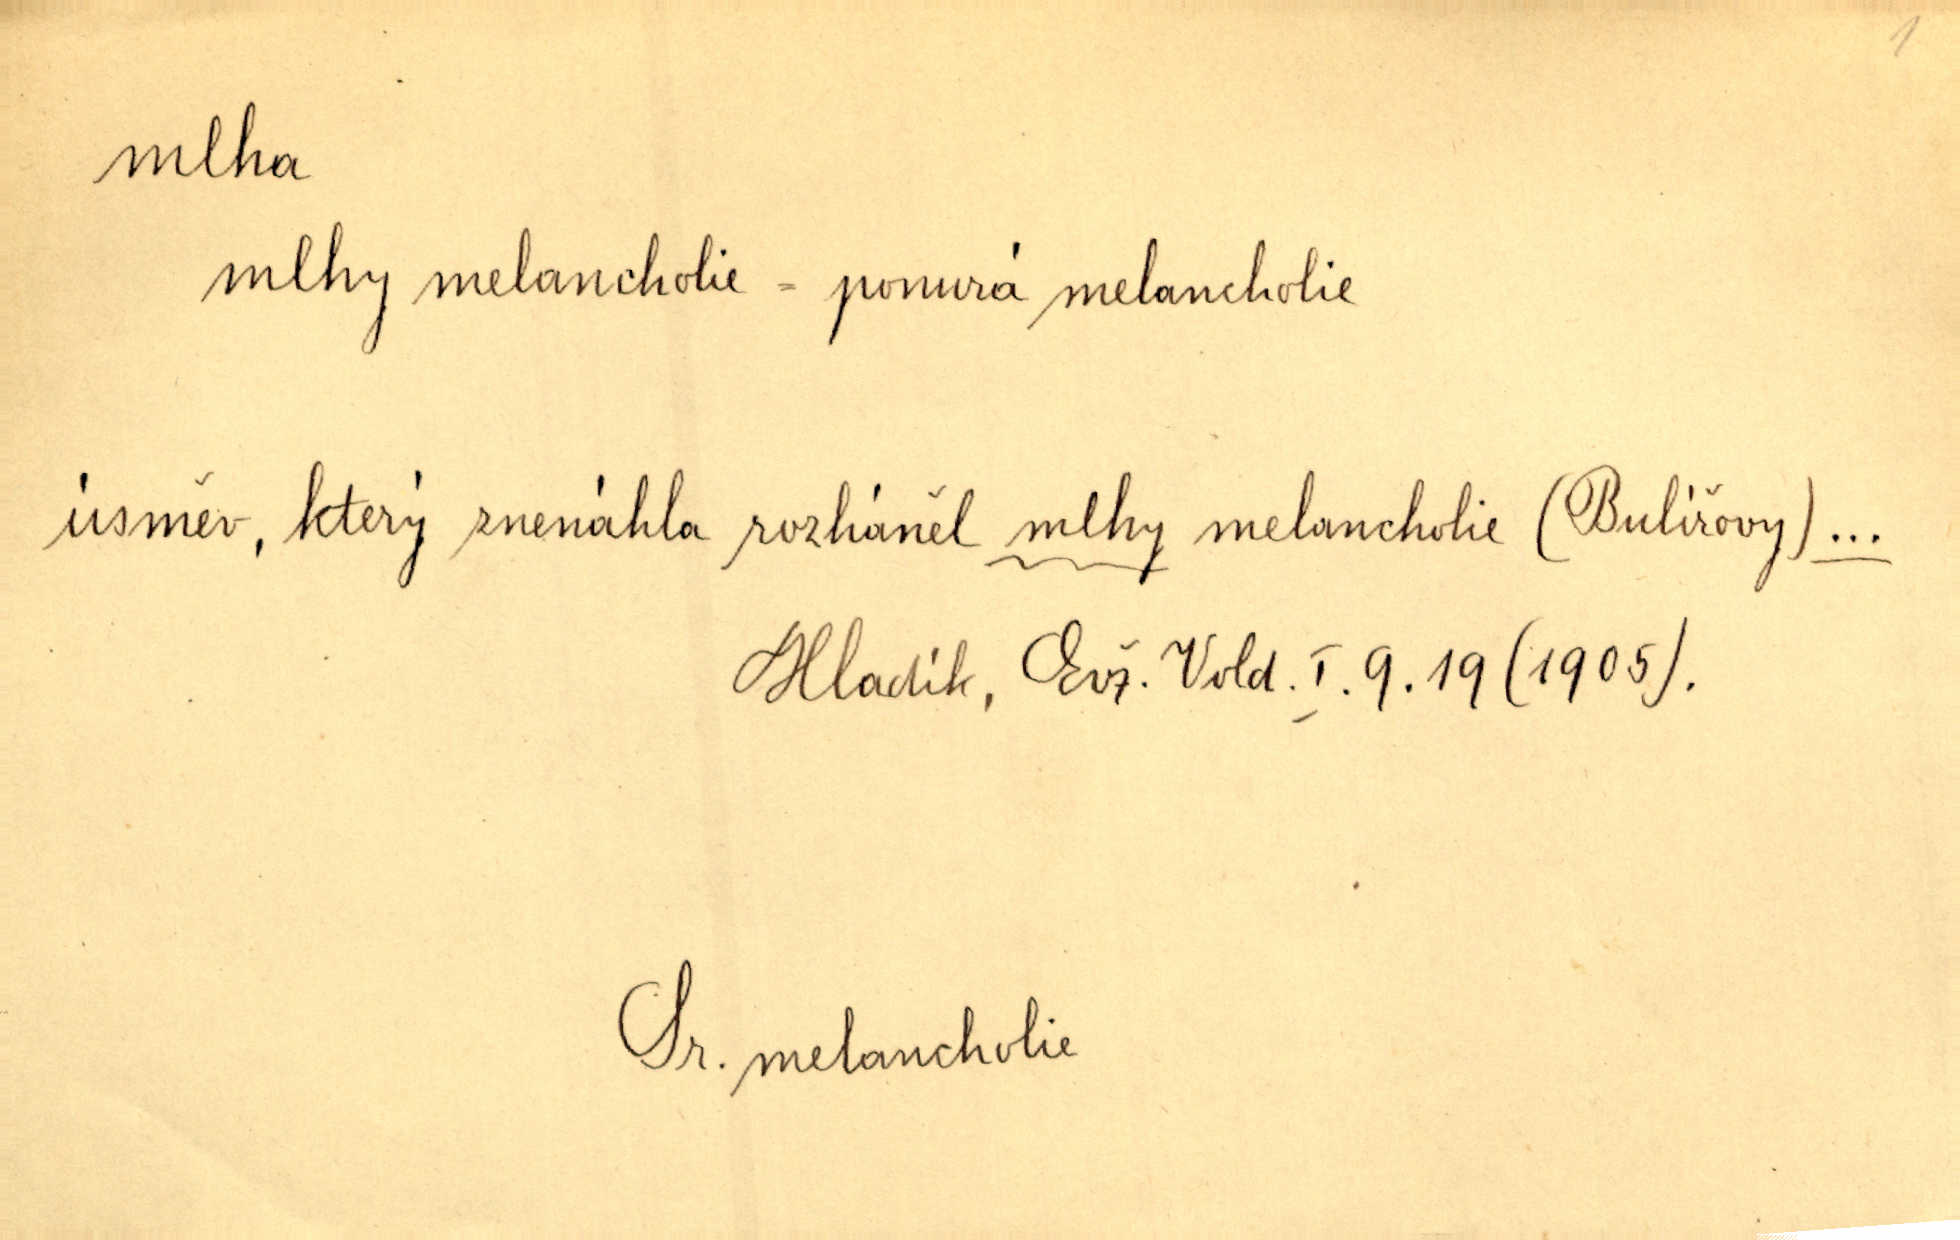 1
mlha
mlhy melancholie = ponurá melancholie
úsměv, který znenáhla rozháněl mlhy melancholie (Bulířovy)...
Hladík, Evž. Vold. I. 9. 19 (1905).
Sr. melancholie